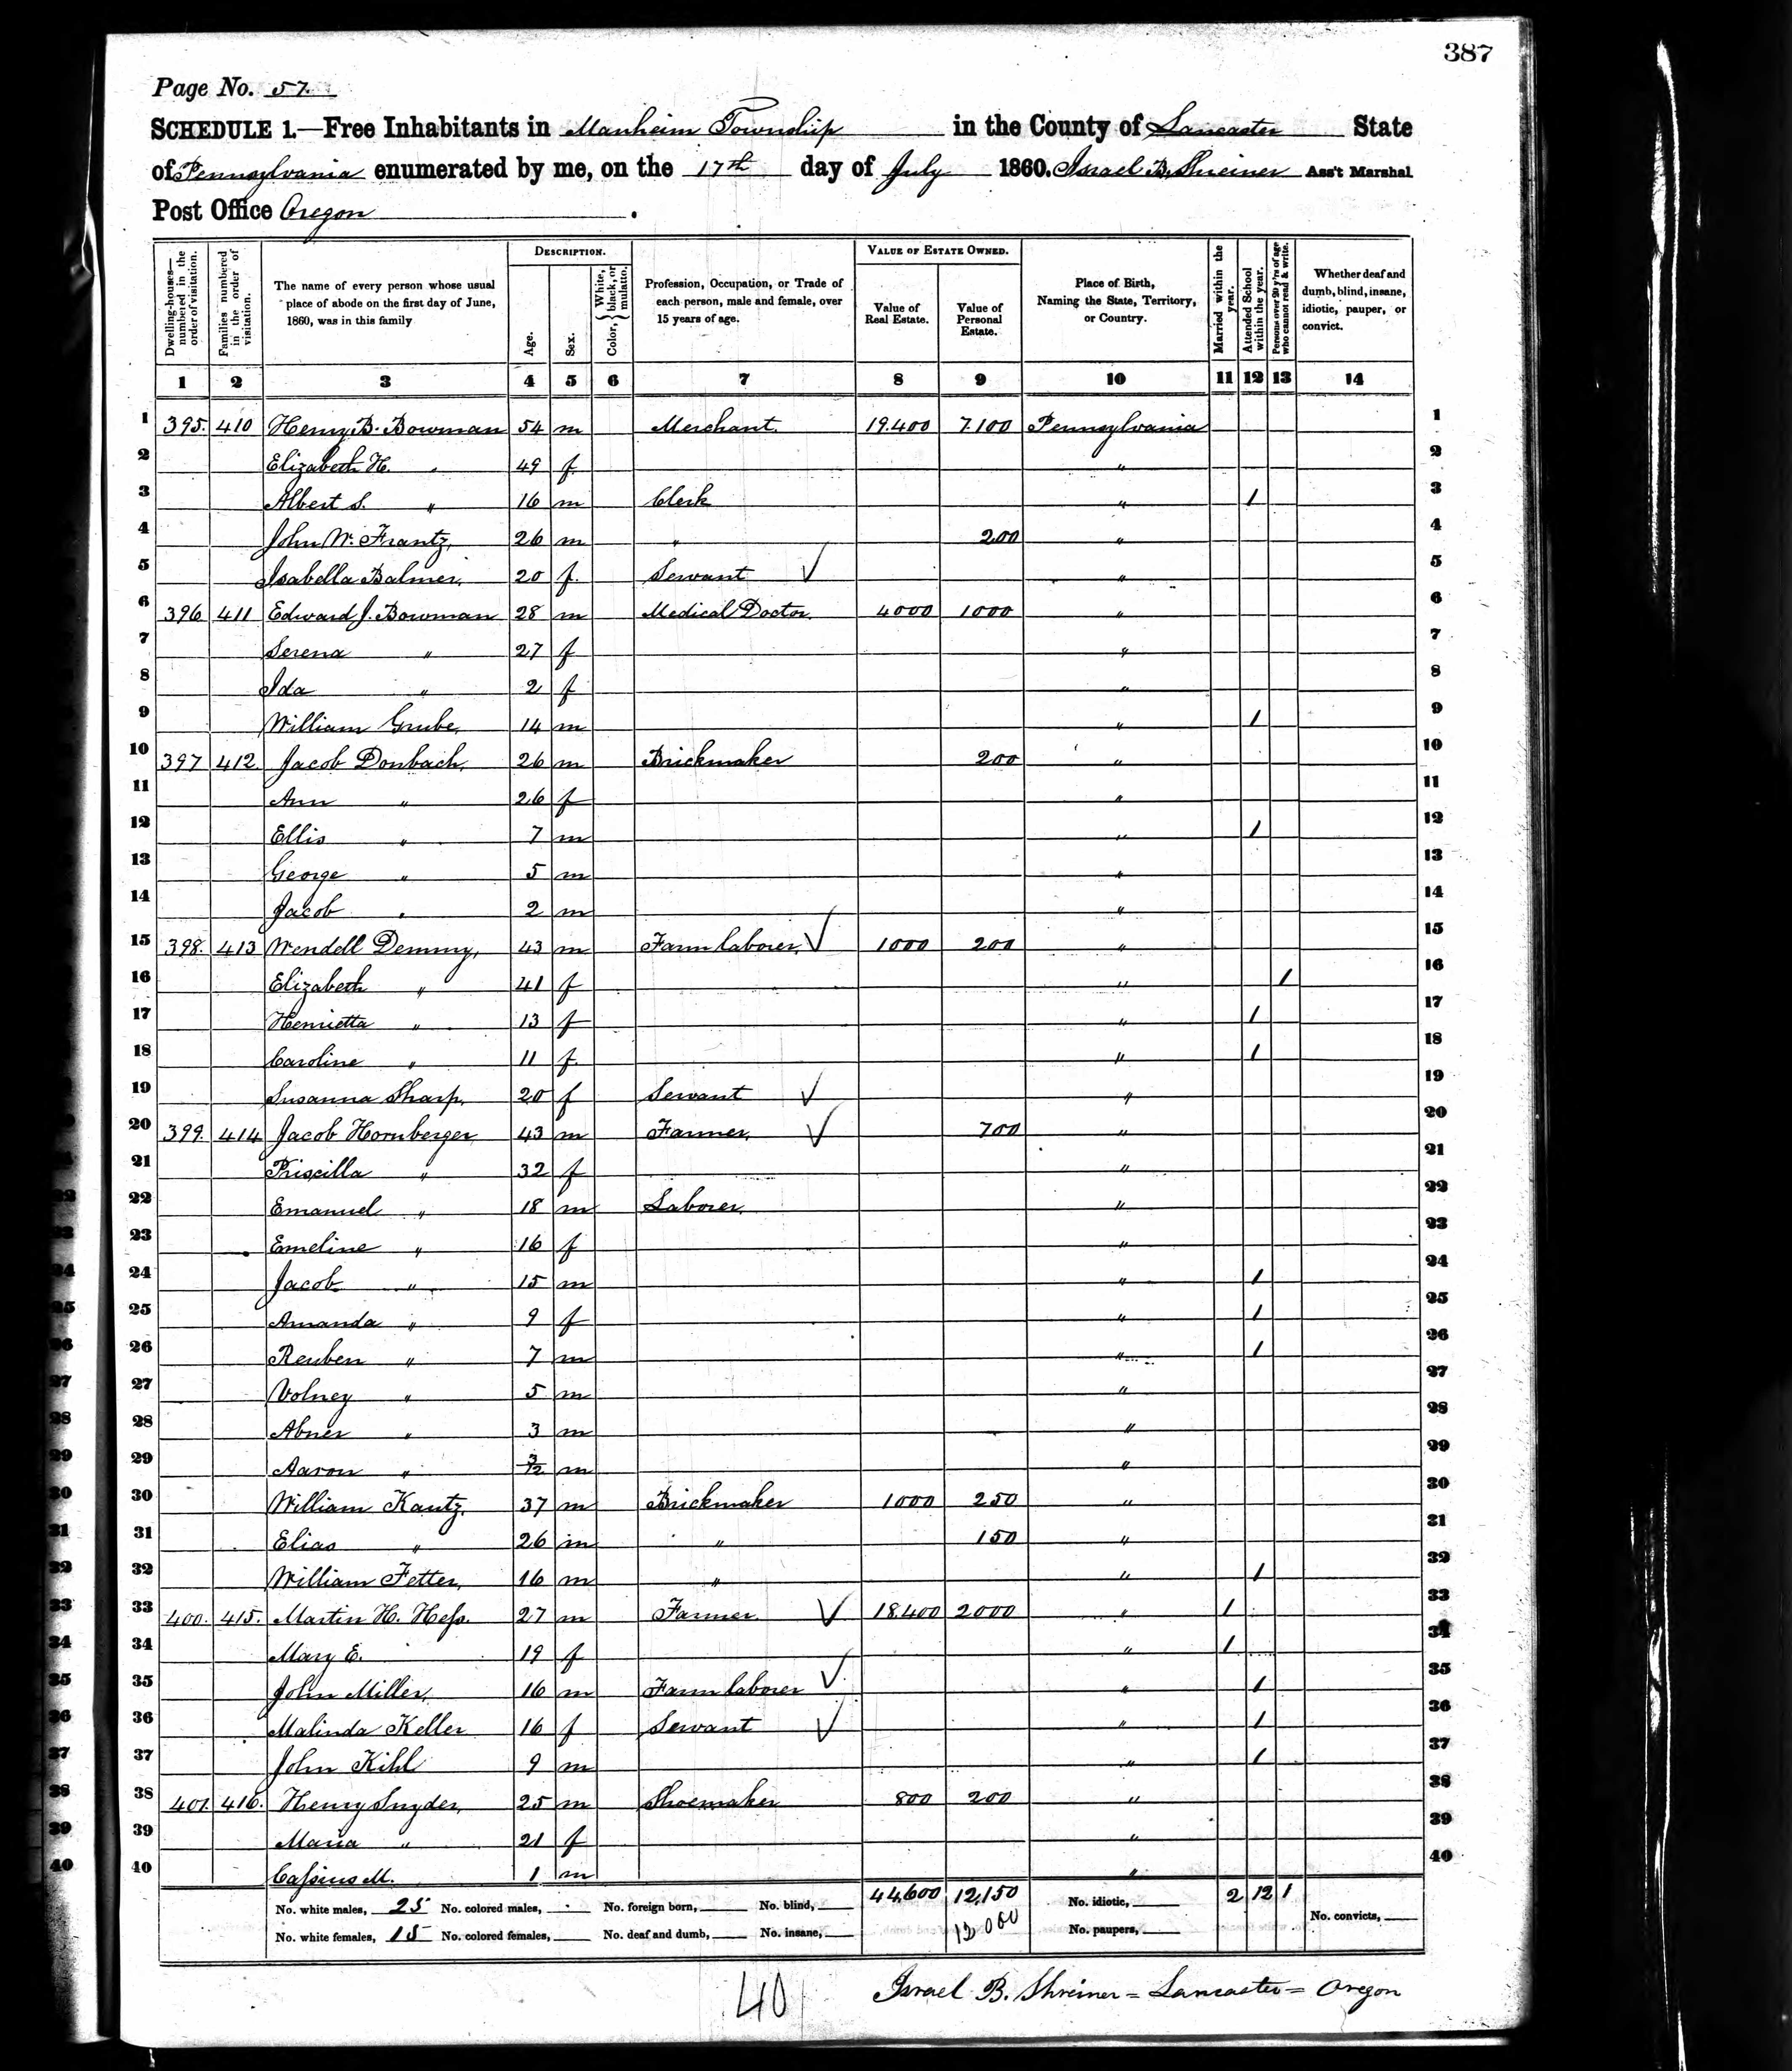 387
Page No. 57
SCHEDULE 1.—Free Inhabitants in Manheim Township in the County of Lancaster State
of Pennsylvania enumerated by me, on the 17th day of July 1860. Israel B. Shreiner Ass't Marshal
Post Office Oregon .
Dwelling-houses—numbered in the order of visitation. Families numbered in the order of visitation. The name of every person whose usual place of abode on the first day of June, 1860, was in this family DESCRIPTION. Age. Sex. Color, {White, black, or mulatto. Profession, Occupation, or Trade of each person, male and female, over 15 years of age. VALUE OF ESTATE OWNED. Value of Real Estate. Value of Personal Estate. Place of Birth, Naming the State, Territory, or Country. Married within the year. Attended School within the year. Persons over 20 y'rs of age who cannot read & write. Whether deaf and dumb, blind, insane, idiotic, pauper, or convict.
1 2 3 4 5 6 7 8 9 10 11 12 13 14
1 395. 410 Henry B. Bowman 54 m Merchant. 19.400 7.100 Pennsylvania 1
2 Elizabeth H. " 49 f " 2
3 Albert S. " 16 m Clerk " 1 3
4 John W. Frantz, 26 m " 200 " 4
5 Isabella Balmer, 20 f. Servant ✓ " 5
6 396 411 Edward J. Bowman 28 m Medical Doctor. 4000 1000 " 6
7 Serena " 27 f " 7
8 Ida " 2 f " 8
9 William Grube, 14 m " 1 9
10 397 412. Jacob Donbach, 26 m Brickmaker 200 " 10
11 Ann " 26 f " 11
12 Ellis " 7 m " 1 12
13 George " 5 m " 13
14 Jacob " 2 m " 14
15 398. 413 Wendell Demmy, 43 m Farm laborer, ✓ 1000 200 " 15
16 Elizabeth " 41 f " 1 16
17 Henrietta " 13 f " 1 17
18 Caroline " 11 f. " 1 18
19 Susanna Sharp, 20 f Servant ✓ " 19
20 399. 414 Jacob Hornberger 43 m Farmer, ✓ 700 " 20
21 Priscilla " 32 f " 21
22 Emanuel " 18 m Laborer. " 22
23 Emeline " 16 f " 23
24 Jacob " 15 m " 1 24
25 Amanda " 9 f " 1 25
26 Reuben " 7 m " 1 26
27 Volney " 5 m " 27
28 Abner " 3 m " 28
29 Aaron " 3/12 m " 29
30 William Kautz, 37 m Brickmaker 1000 250 " 30
31 Elias " 26 m " 150 " 31
32 William Fetter, 16 m " " 1 32
33 400. 415. Martin H. Hess. 27 m Farmer. ✓ 18.400 2000 " 1 33
34 Mary E. 19 f " 1 34
35 John Miller, 16 m Farm laborer ✓ " 1 35
36 Malinda Keller 16 f Servant ✓ " 1 36
37 John Kihl 9 m " 1 37
38 401. 416. Henry Snyder, 25 m Shoemaker 800 200 " 38
39 Maria " 21 f " 39
40 Cassius M. 1 m " 40
No. white males, 25 No. colored males, No. foreign born, No. blind, 44,600 12,150 No. idiotic, 2 12 1 No. convicts,
No. white females, 15 No. colored females, No. deaf and dumb, No. insane, No. paupers,
40 Israel B. Shreiner = Lancaster = Oregon